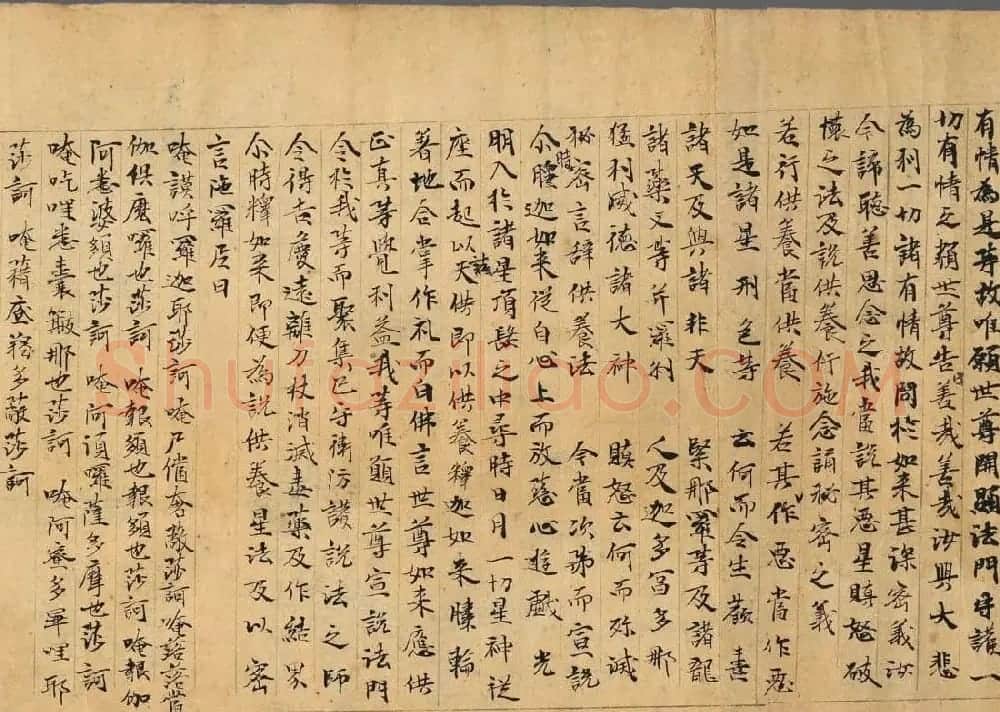 有情為是等故唯願世尊開顯法門守護一
切有情之類世尊告曰善哉善哉汝興大悲
為利一切諸有情故問於如来甚深密義汝
今諦聽善思念之我當說其惡星瞋怒破
壞之法及說供養行施念誦秘密之義
若行供養當供養 若其作惡當作惡
如是諸星刑色等 云何而令生歡喜
諸天及與諸非天 緊那羅等及諸龍
諸藥叉等并羅剎 人及迦多富多那
猛利威德諸大神 瞋怒云何而殄滅
秘密言辭供養法 今當次第而宣說
尒時釋迦如来從自心上而放慈心遊戲光
明入於諸星頂髻之中尋時日月一切星神從
座而起以諸天供即以供養釋迦如来膝輪
著地合掌作礼而白佛言世尊如来應供
正真等覺利益我等唯願世尊宣說法門
令於我等而聚集已守衛防護說法之師
令得吉慶遠離刀杖消滅毒藥及作結界
尒時釋如来即便為說供養星法及以密
言陁羅尼曰
唵謨呼羅迦耶莎訶唵尸儋奢敵莎訶唵
伽俱麼囉也莎訶 唵報頞也報頞也莎訶唵報伽
阿悉婆頞也莎訶 唵阿須囉薩多摩也莎訶
唵吃哩悉囊皺那也莎訶 唵阿蜜多畢哩耶
莎訶 唵籍底稽多敵莎訶
Shufaziliao.COM